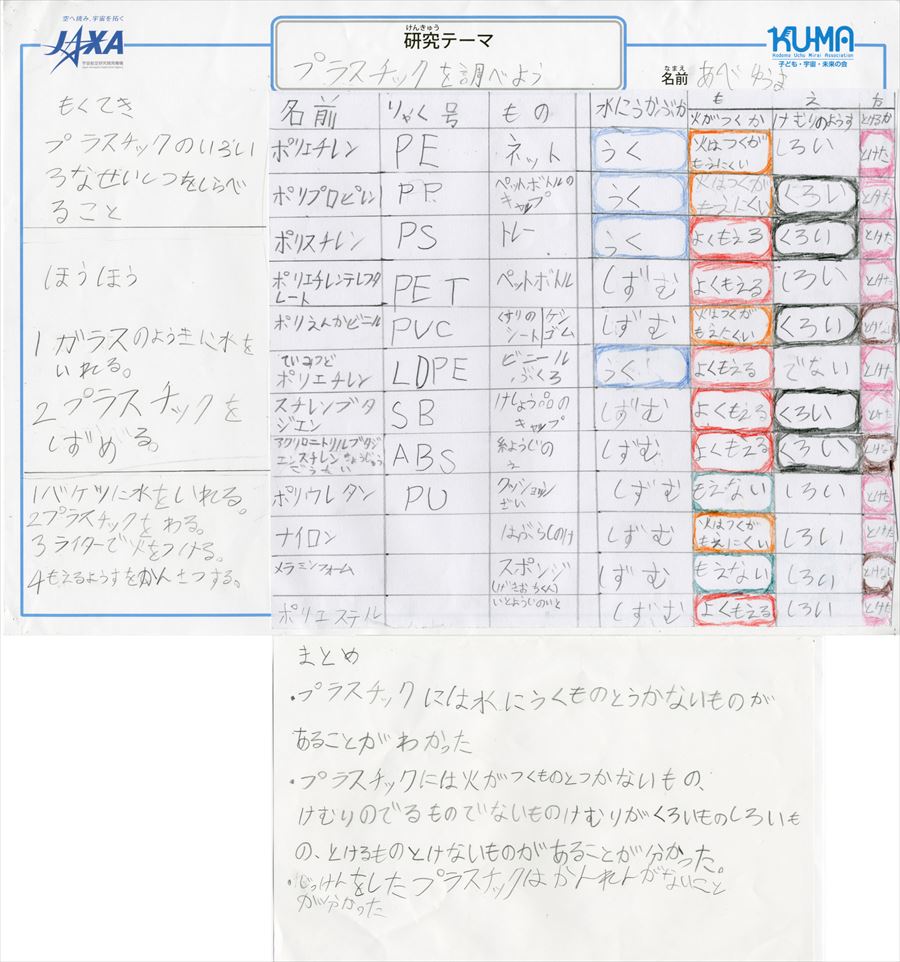 空へ挑み、宇宙を拓く
JAXA
宇宙航空研究開発機構
けんきゅう
研究テーマ
プラスチックを調べよう
なまえ
名前 あべ ゆうま
KU-MA
Kodomo Uchu Mirai Association
子ども・宇宙・未来の会
もくてき
プラスチックのいろい
ろなせいしつをしらべ
ること
ほうほう
1 ガラスのようきに水を
いれる。
2プラスチックを
しずめる。
1バケツに水をいれる。
2プラスチックをわる。
3ライターで火をつける。
4もえるようすをかんさつする。
名前 りゃく号 もの 水にうかぶか も え 方
火がつくか けむりのようす とけるか
ポリエチレン PE ネット うく 火はつくがもえにくい しろい とけた
ポリプロピレン PP ペットボトルのキャップ うく 火はつくがもえにくい くろい とけた
ポリスチレン PS トレー うく よくもえる くろい とけた
ポリエチレンテレフタレート PET ペットボトル しずむ よくもえる しろい とけた
ポリえんかビニル PVC くすりのシート ケシゴム しずむ 火はつくがもえにくい くろい とけない
ていみつどポリエチレン LDPE ビニールぶくろ うく よくもえる でない とけた
スチレンブタジエン SB けしょう品のキャップ しずむ よくもえる くろい とけた
アクリロニトリルブタジエンスチレンきょうじゅうごうたい ABS 糸ようじのえ しずむ よくもえる くろい とけない
ポリウレタン PU クッションざい しずむ もえない しろい とけた
ナイロン はぶらしのけ しずむ 火はつくがもえにくい しろい とけた
メラミンフォーム スポンジ(げきおちくん) しずむ もえない しろい とけない
ポリエステル いとようじのいと しずむ よくもえる しろい とけた
まとめ
・プラスチックには水にうくものとうかないものが
あることがわかった
・プラスチックには火がつくものとつかないもの、
けむりのでるものでないものけむりがくろいものしろいも
の、とけるものとけないものがあることが分かった。
・じっけんをしたプラスチックはかんれんがないこと
が分かった